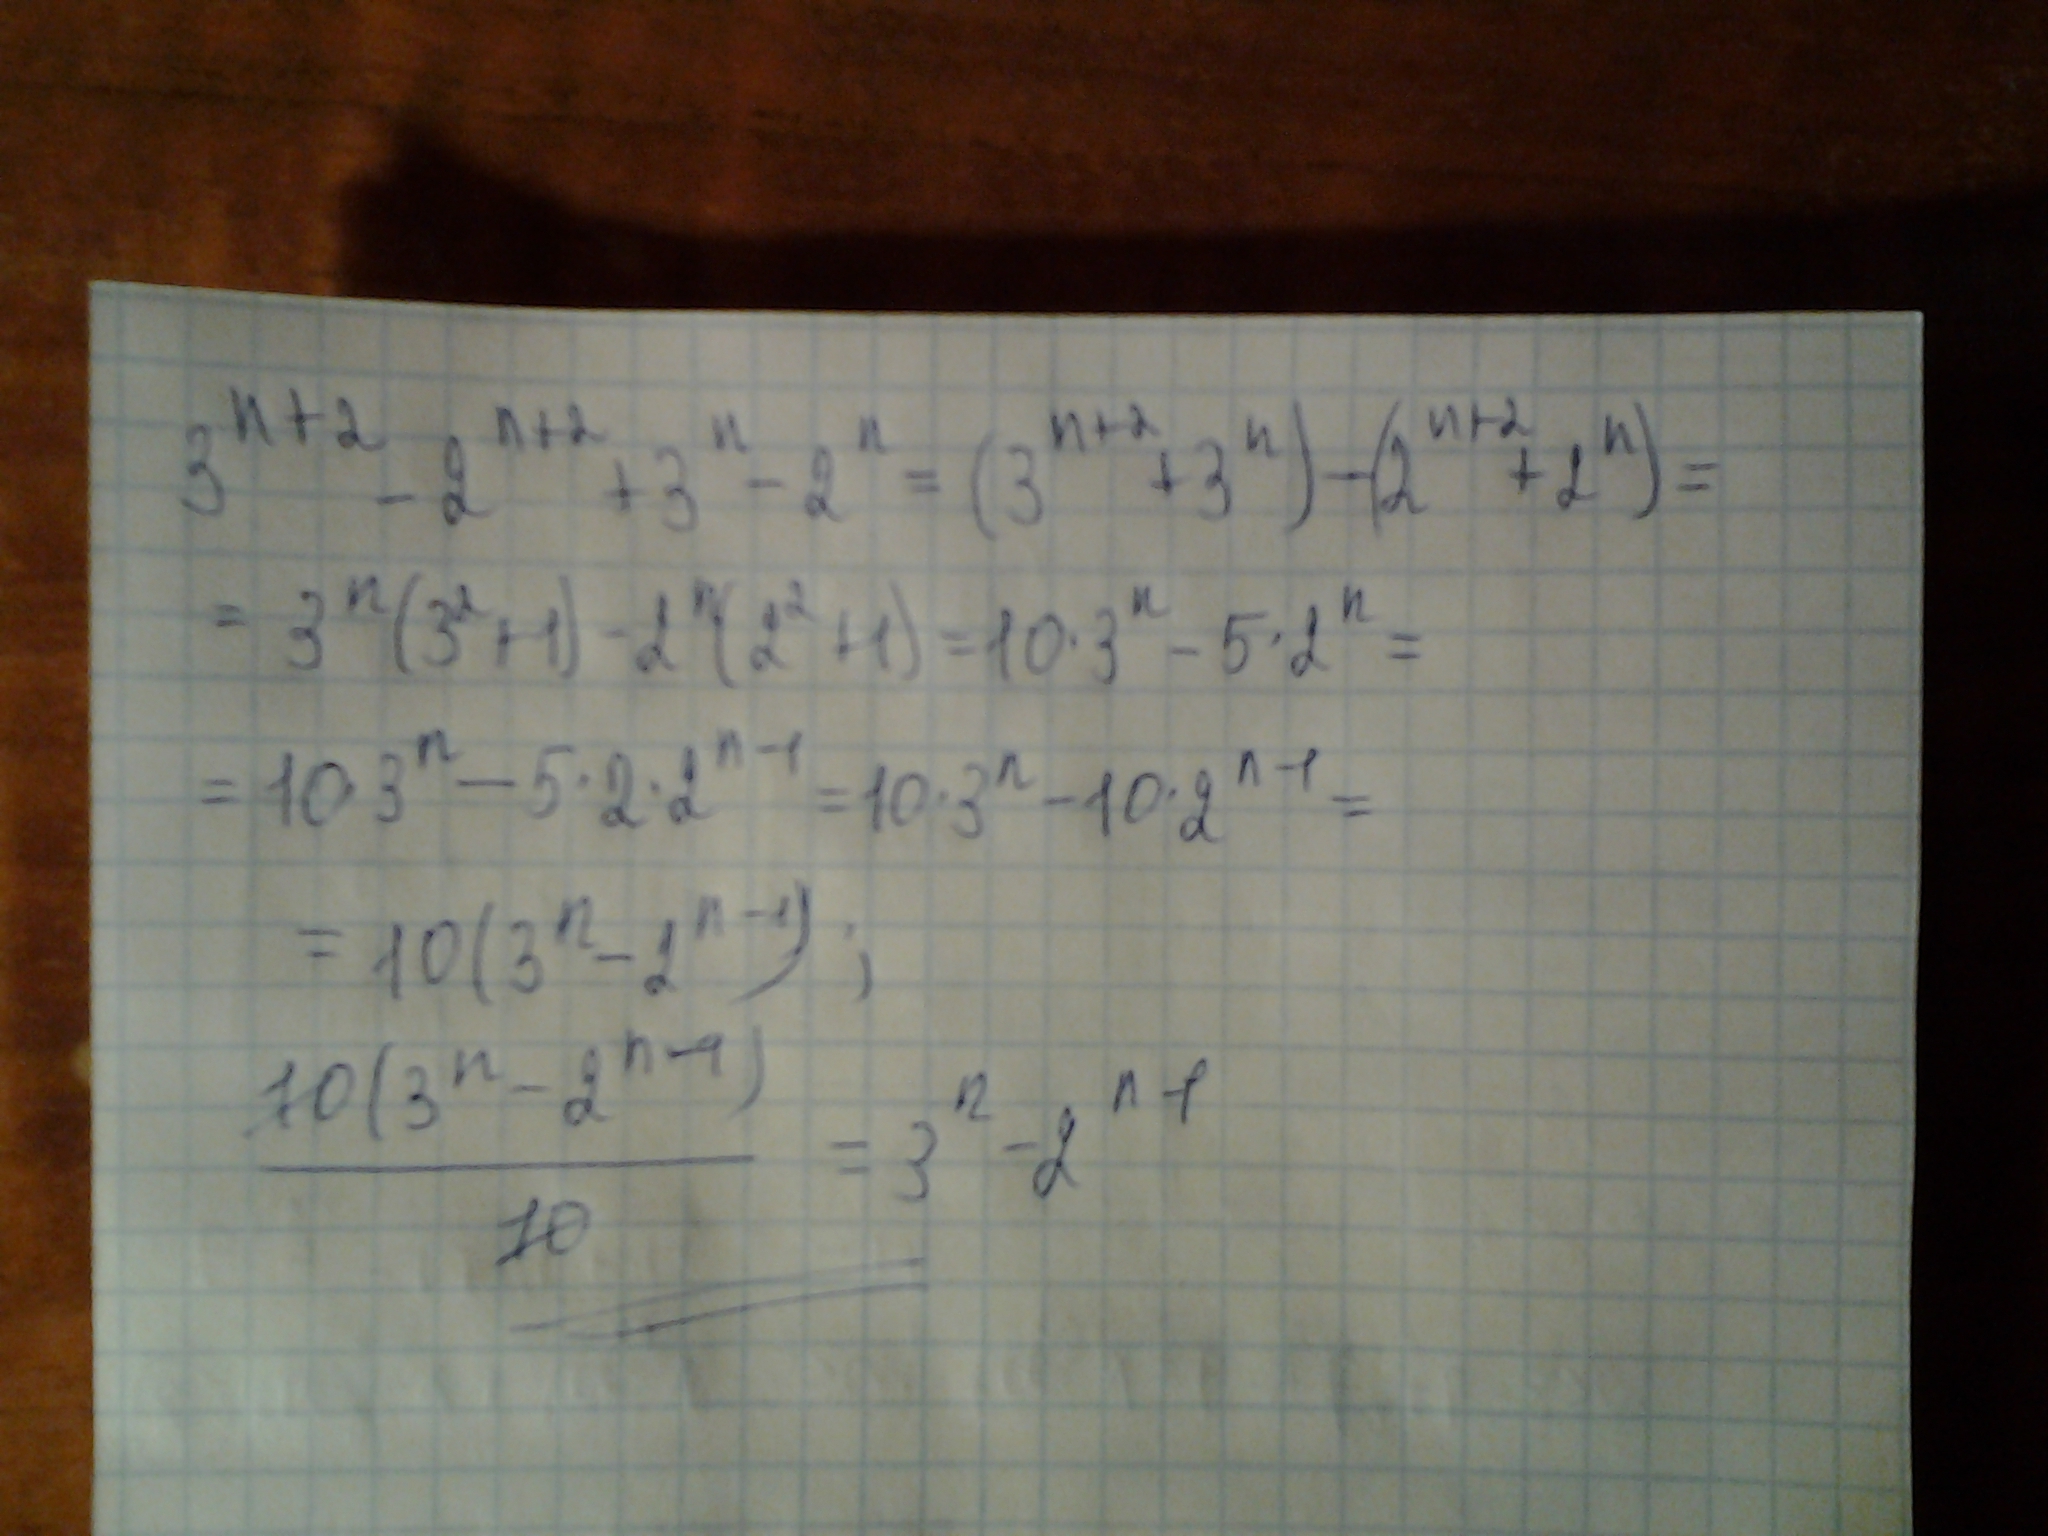 3^{n+2} - 2^{n+2} + 3^n - 2^n = (3^{n+2} + 3^n) - (2^{n+2} + 2^n) =
= 3^n (3^2 + 1) - 2^n (2^2 + 1) = 10 · 3^n - 5 · 2^n =
= 10 · 3^n - 5 · 2 · 2^{n-1} = 10 · 3^n - 10 · 2^{n-1} =
= 10 (3^n - 2^{n-1});
\frac{10 (3^n - 2^{n-1})}{10} = 3^n - 2^{n-1}